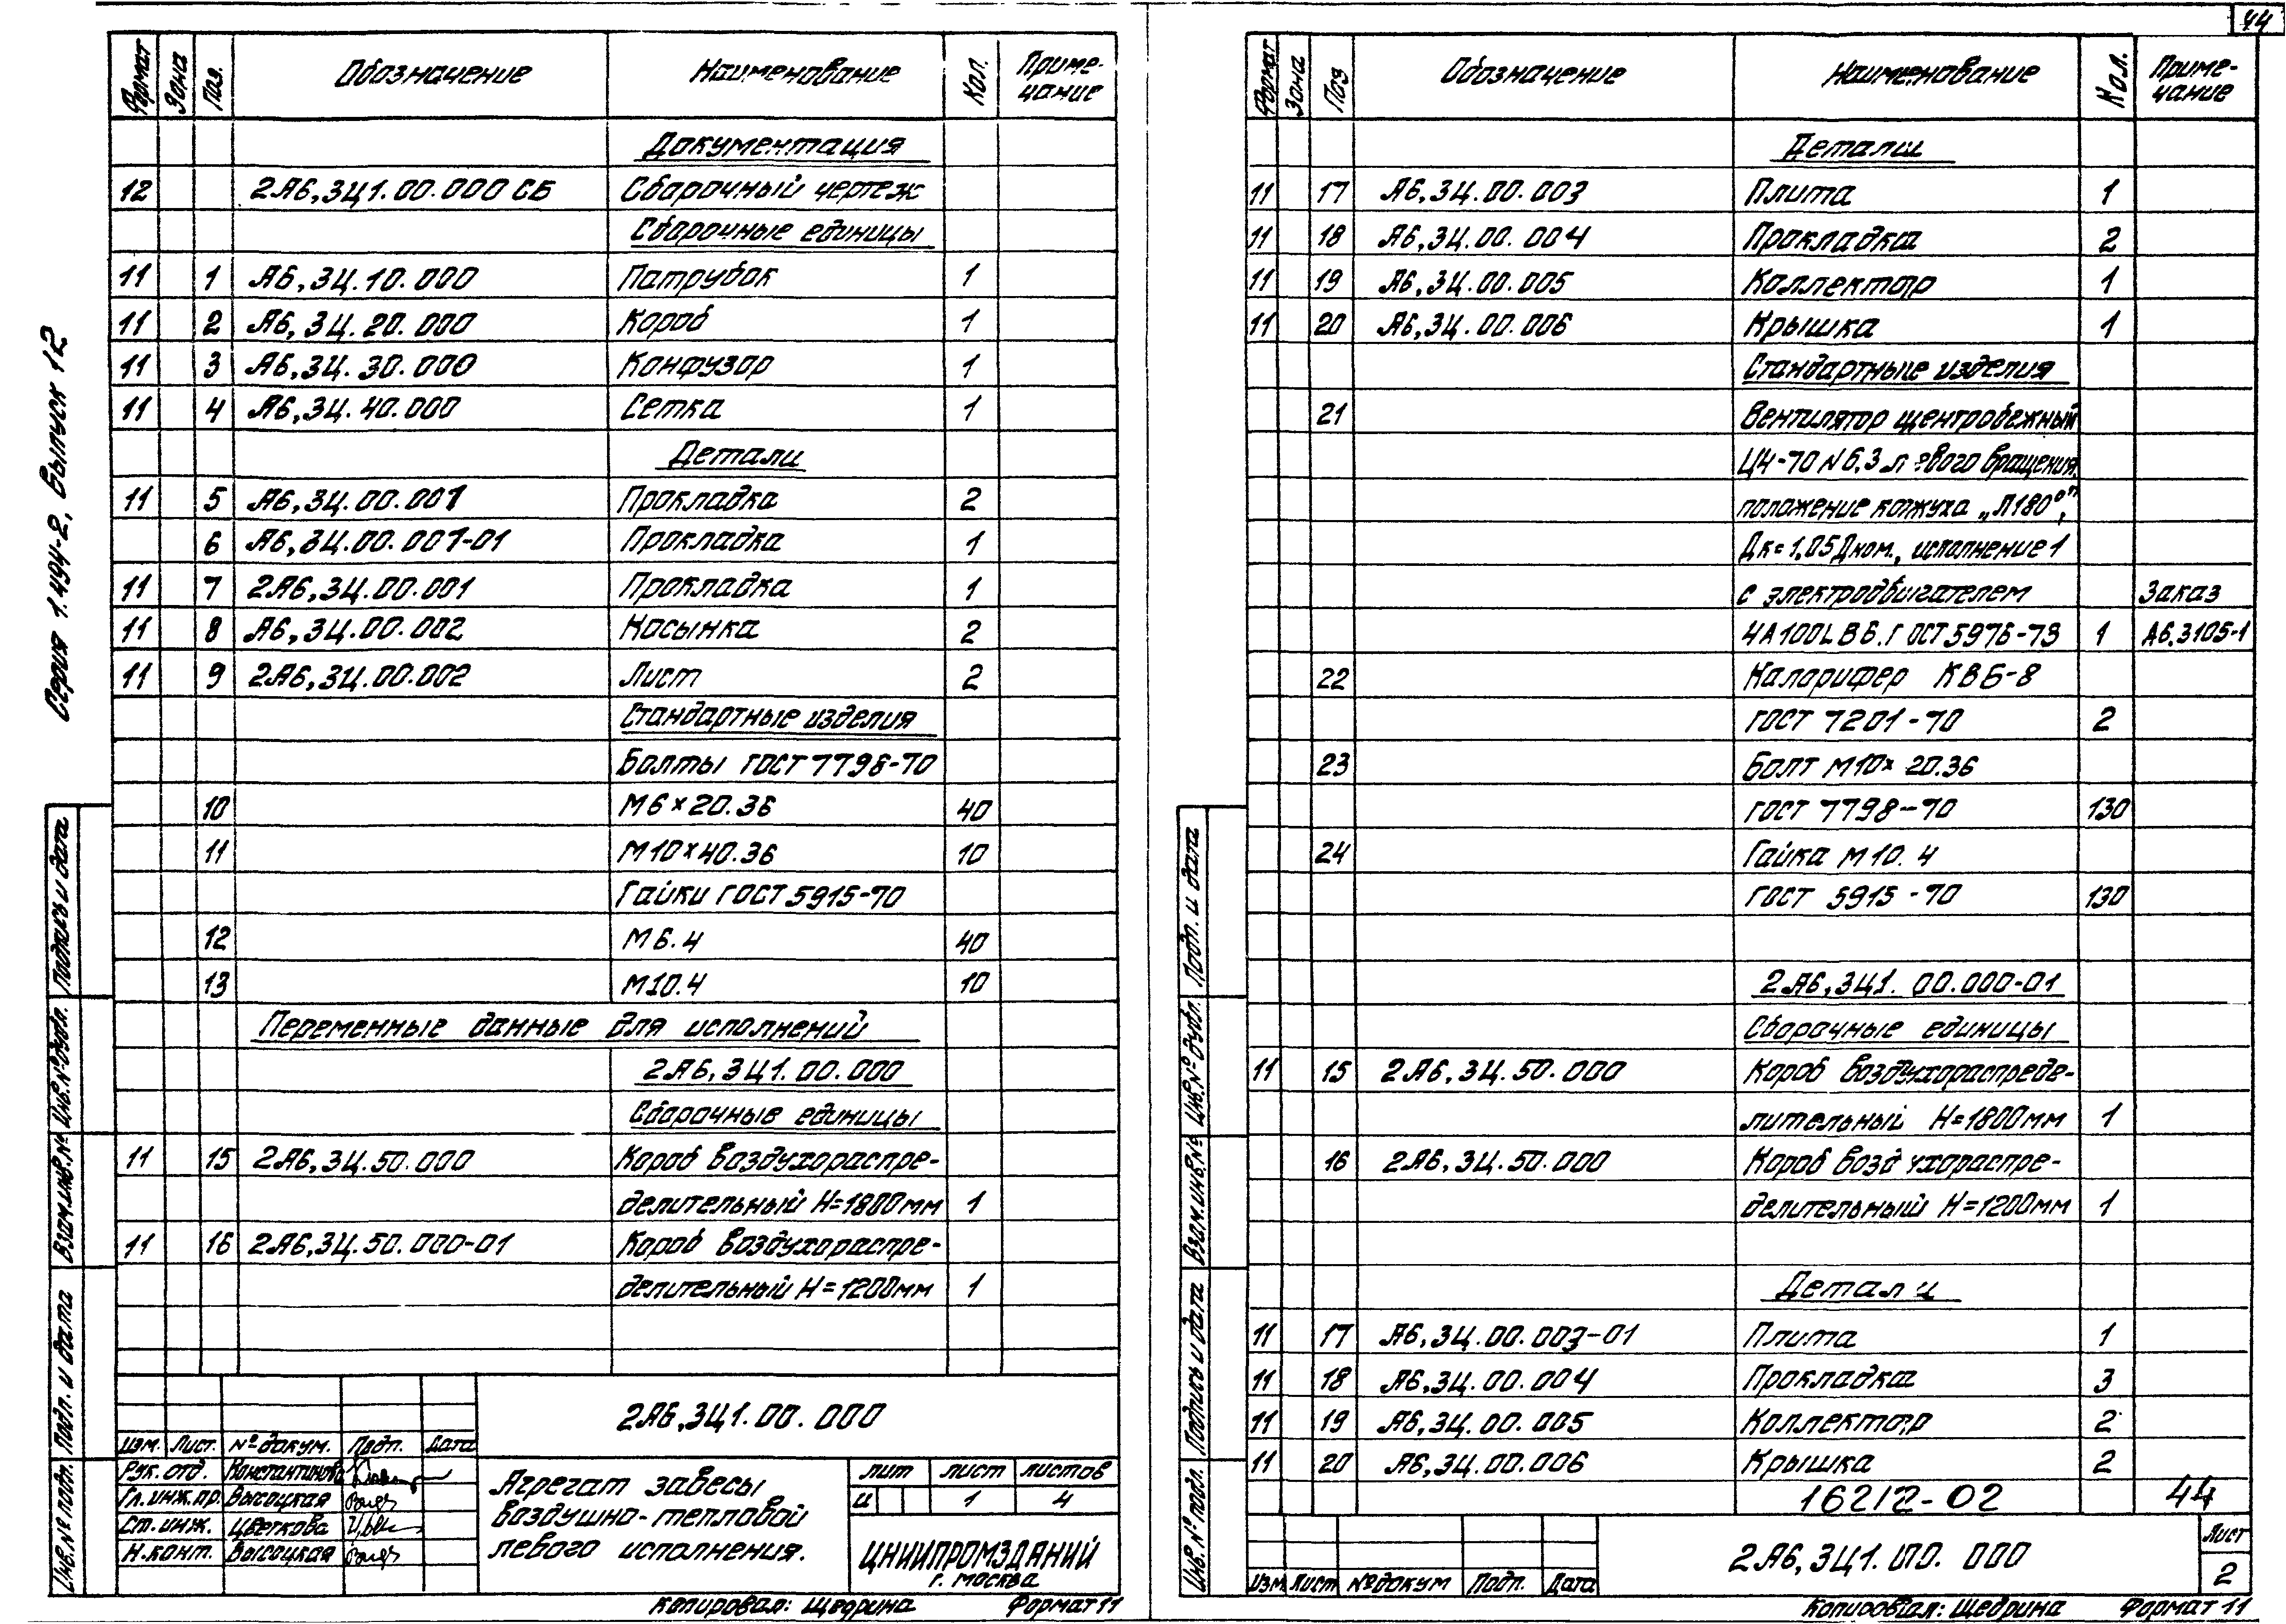 44
Серия 1.494-2, Выпуск 12
Формат Зона Поз. Обозначение Наименование Кол. Приме-
чание
Документация
12 2А6,3Ц1.00.000 СБ Сборочный чертеж
Сборочные единицы
11 1 А6,3Ц.10.000 Патрубок 1
11 2 А6,3Ц.20.000 Короб 1
11 3 А6,3Ц.30.000 Конфузор 1
11 4 А6,3Ц.40.000 Сетка 1
Детали
11 5 А6,3Ц.00.001 Прокладка 2
6 А6,3Ц.00.001-01 Прокладка 1
11 7 2А6,3Ц.00.001 Прокладка 1
11 8 А6,3Ц.00.002 Косынка 2
11 9 2А6,3Ц.00.002 Лист 2
Стандартные изделия
Болты ГОСТ 7798-70
10 М6×20.36 40
11 М10×40.36 10
Гайки ГОСТ 5915-70
12 М6.4 40
13 М10.4 10
Переменные данные для исполнений
2А6,3Ц1.00.000
Сборочные единицы
11 15 2А6,3Ц.50.000 Короб воздухораспре-
делительный Н=1800мм 1
11 16 2А6,3Ц.50.000-01 Короб воздухораспре-
делительный Н=1200мм 1
2А6,3Ц1.00.000
Изм. Лист. № докум. Подп. Дата
Рук. отд. Константинова
Гл. инж. пр. Высоцкая
Ст. инж. Цветкова
Н. конт. Высоцкая
Агрегат завесы
воздушно-тепловой
левого исполнения.
лит лист листов
и 1 4
ЦНИИПРОМЗДАНИЙ
г. Москва
Копировал: Щедрина Формат 11
Инв. № подл. Подп. и дата Взам. инв. № Инв. № дубл. Подпись и дата
Формат Зона Поз Обозначение Наименование Кол. Приме-
чание
Детали
11 17 А6,3Ц.00.003 Плита 1
11 18 А6,3Ц.00.004 Прокладка 2
11 19 А6,3Ц.00.005 Коллектор 1
11 20 А6,3Ц.00.006 Крышка 1
Стандартные изделия
21 Вентилятор центробежный
Ц4-70 №6,3 левого вращения,
положение кожуха „Л180°",
Дк=1,05Дном., исполнение 1
с электродвигателем Заказ
4А100LВ6. ГОСТ 5976-73 1 А6.3105-1
22 Калорифер КВБ-8
ГОСТ 7201-70 2
23 Болт М10×20.36
ГОСТ 7798-70 130
24 Гайка М10.4
ГОСТ 5915-70 130
2А6,3Ц1.00.000-01
Сборочные единицы
11 15 2А6,3Ц.50.000 Короб воздухораспреде-
лительный Н=1800мм 1
16 2А6,3Ц.50.000 Короб воздухораспре-
делительный Н=1200мм 1
Детали
11 17 А6,3Ц.00.003-01 Плита 1
11 18 А6,3Ц.00.004 Прокладка 3
11 19 А6,3Ц.00.005 Коллектор 2
11 20 А6,3Ц.00.006 Крышка 2
16212-02 44
2А6,3Ц1.00.000
Лист
2
Изм Лист № докум Подп. Дата
Копировал: Щедрина Формат 11
Инв. № подл. Подпись и дата Взам. инв. № Инв. № дубл. Подп. и дата